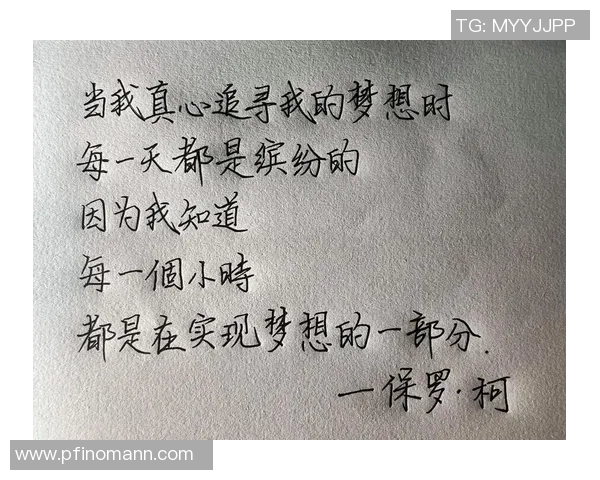 TG: MYYJJPP
当我真心追寻我的梦想时
每一天都是缤纷的
因为我知道
每一個小時
都是在实现梦想的一部分.
一保罗·柯
www.pfinomann.com